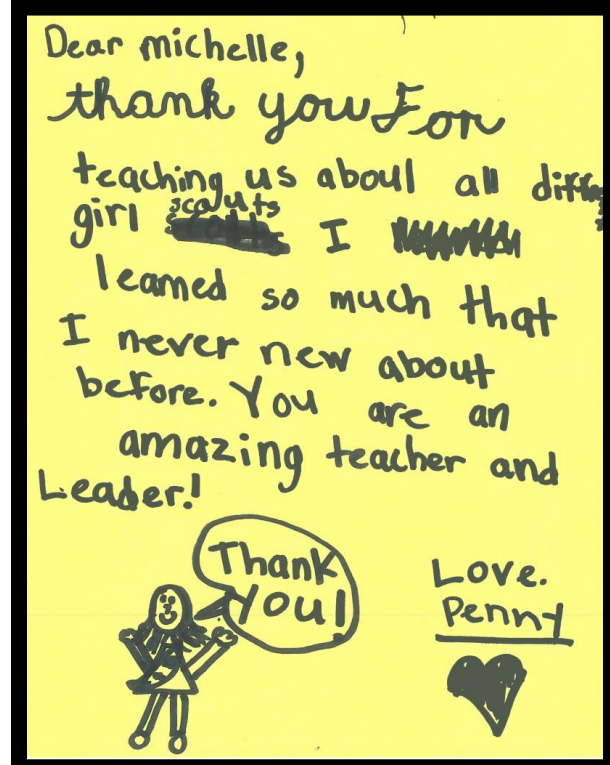 Dear michelle,
thank you For
teaching us about all
girl scouts I
learned so much that
I never new about
before. You are an
amazing teacher and
Leader!
Thank
You!
Love.
Penny